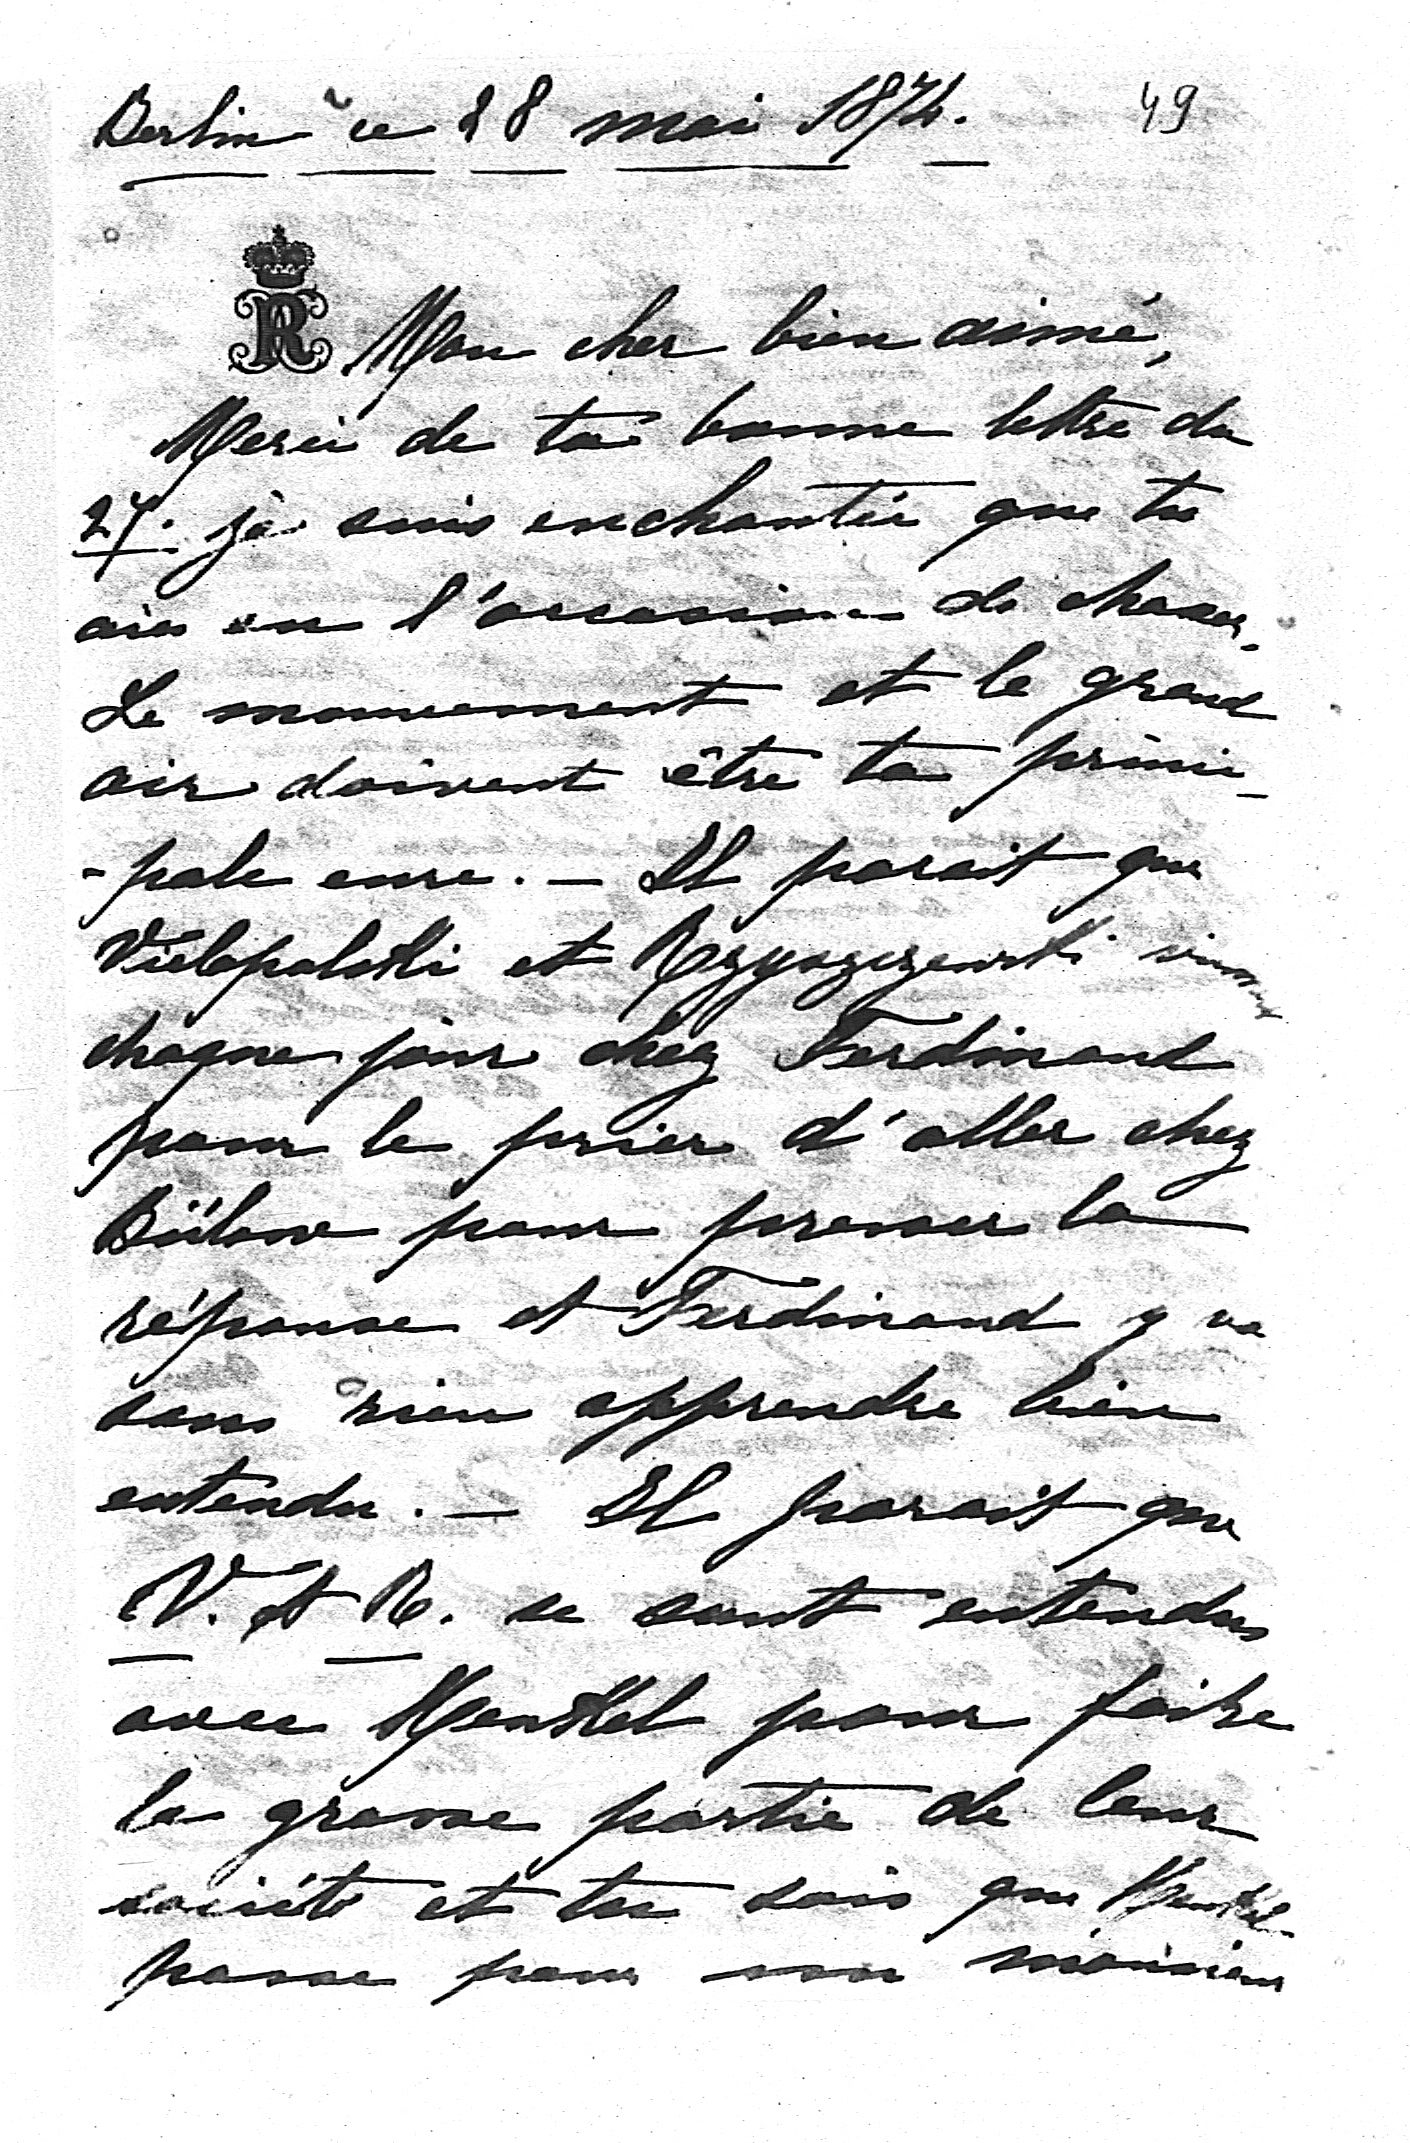 Berlin ce 28 mai 1874.
49
R
Mon cher bien aimé,
Merci de ta bonne lettre du
27. je suis enchantée que tu
aies eu l'occasion de chasser.
Le mouvement et le grand
air doivent être ta princi-
-pale cure. — Il parait que
Vielopolski et viennent
chaque jour chez Ferdinand
pour le prier d'aller chez
Bülow pour presser la
réponse et Ferdinand y va
sans rien apprendre bien
entendu. — Il parait que
V. et R. se sont entendus
avec Henkel pour faire
la grosse partie de leur
société et tu sais que Henkel
passe pour un monsieur